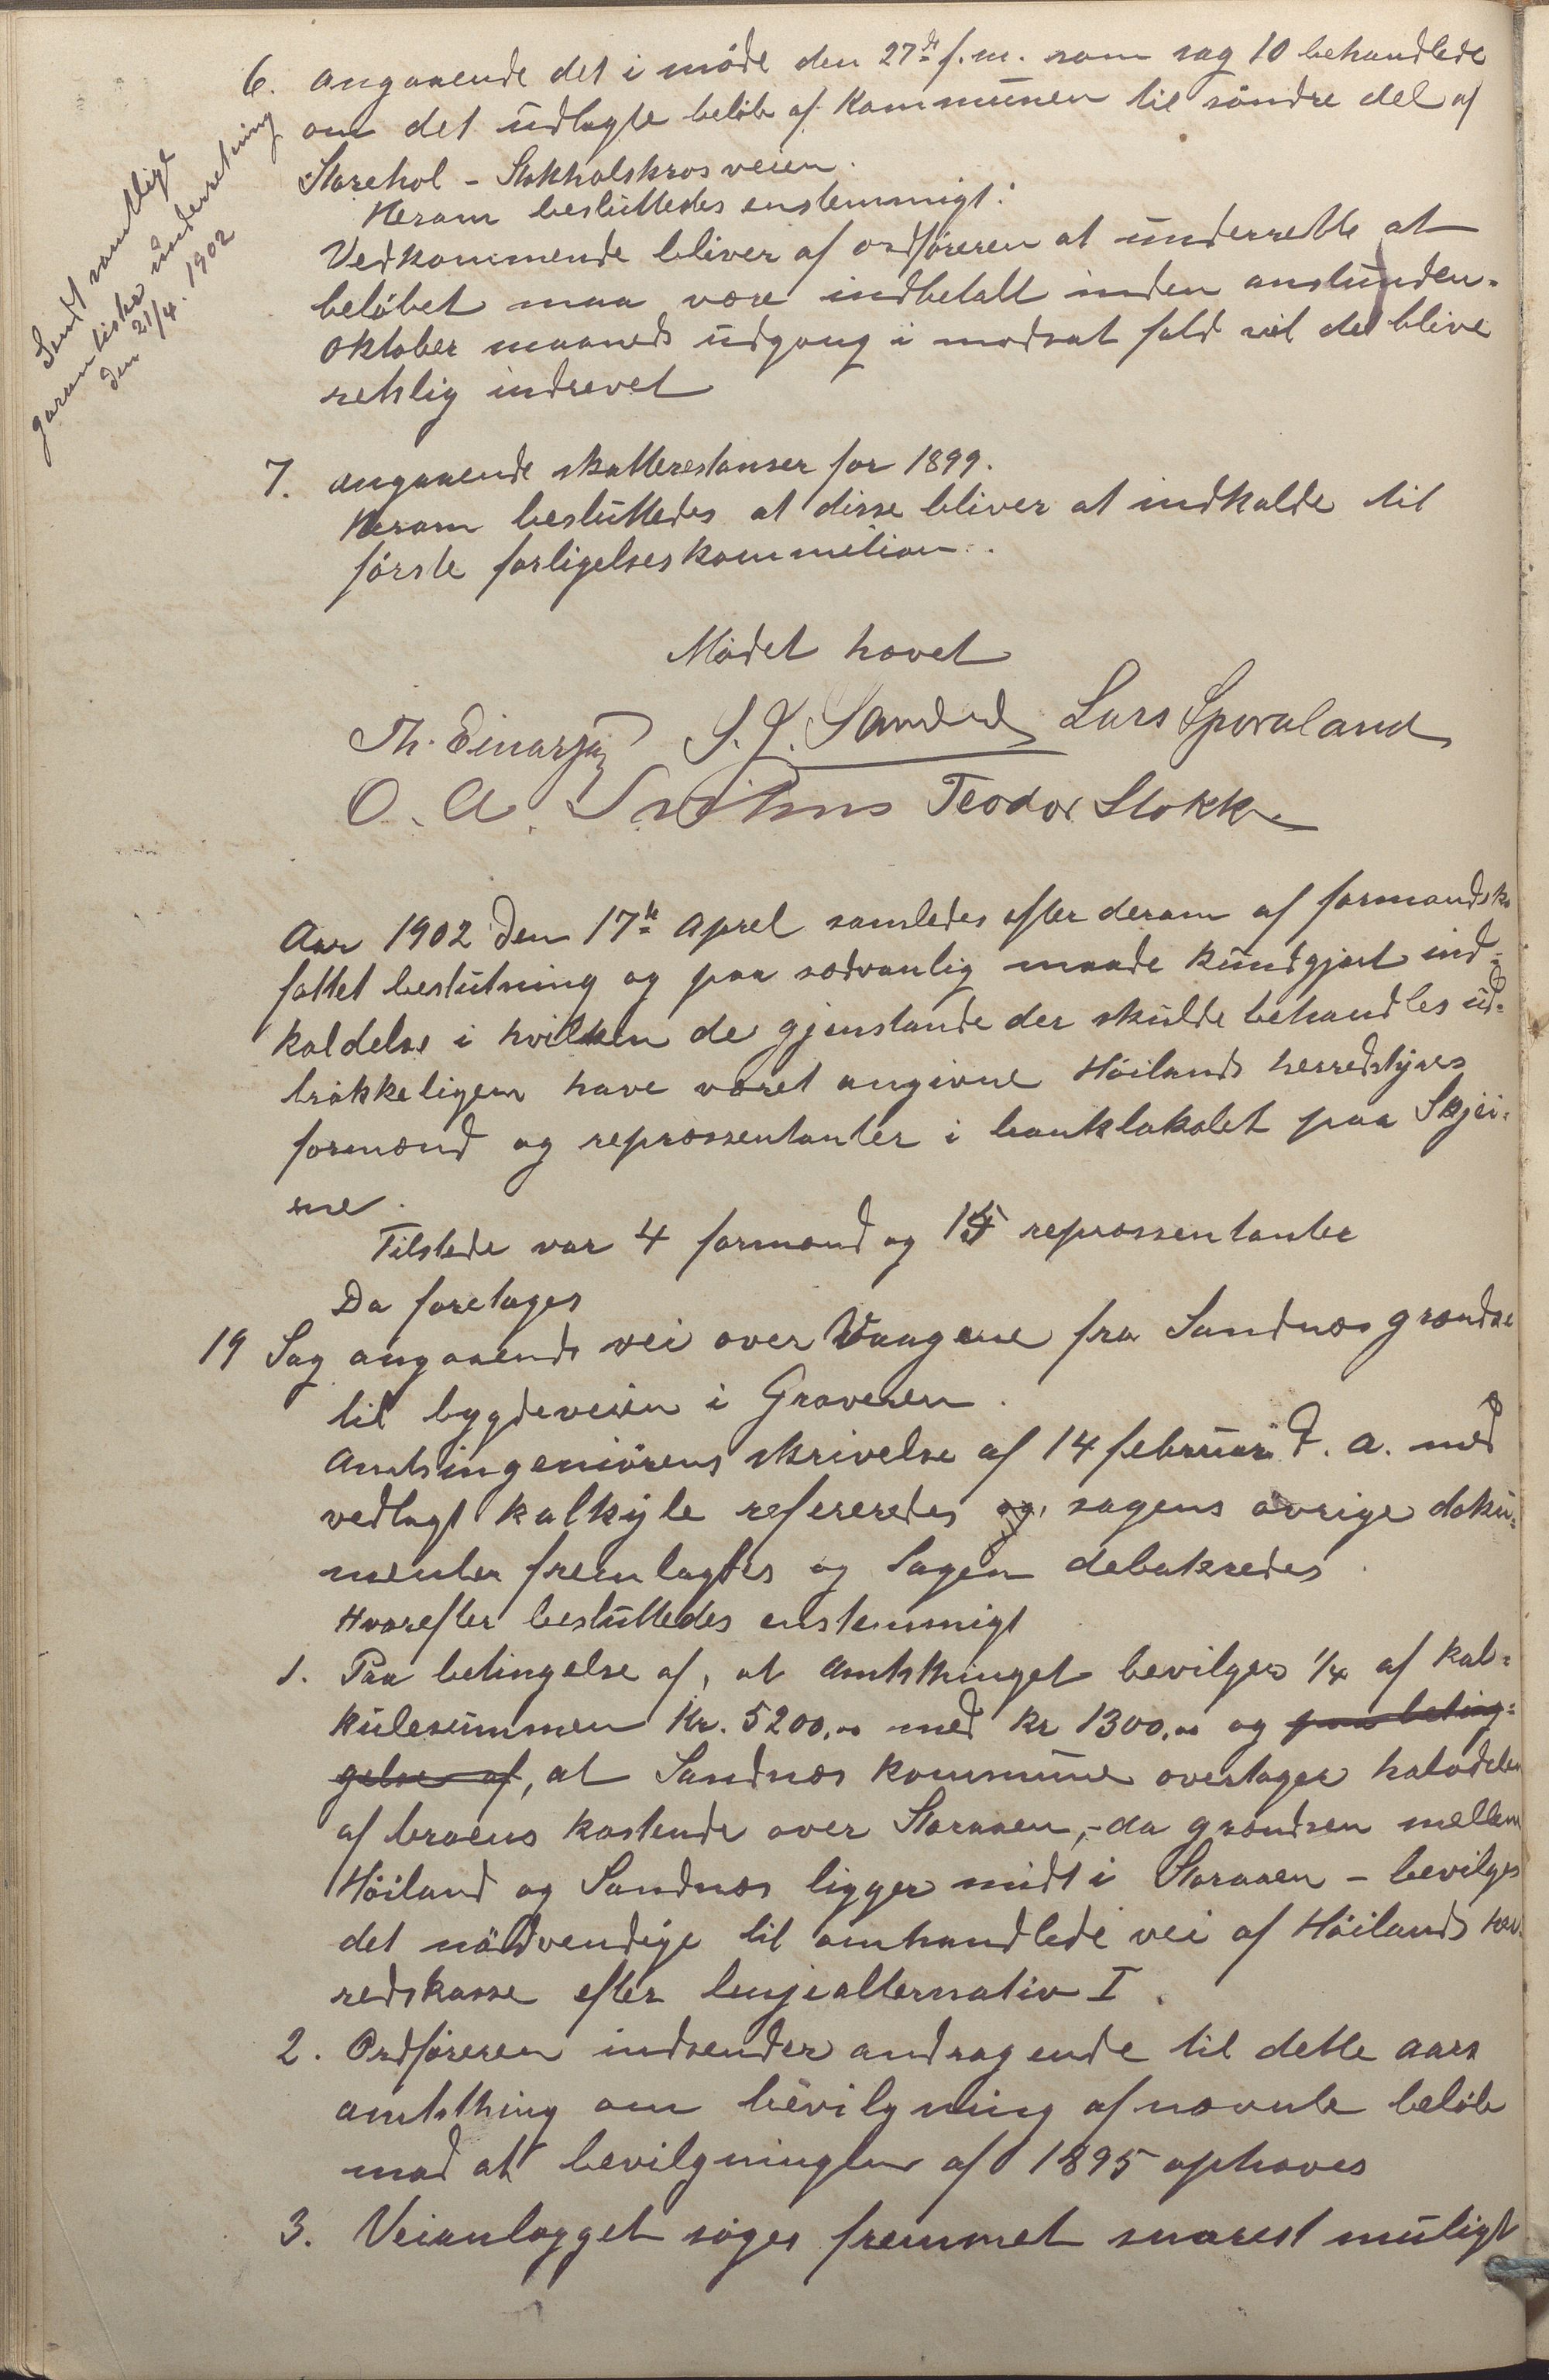 6. angaaende det i møde den 27de f.m. som sag 10 behandlede
om det udlagte beløb af Kommunen til søndre del af
Storehol - Stokholskros veien.
Herom besluttedes enstemmigt:
Vedkommende bliver af ordføreren at underrette at
beløbet maa være indbetalt inden anstunden-
oktober maaneds udgang i modsat fald vil det blive
retslig indrevet
Sendt samtlige
garantister underretning
den 21/4. 1902
7. angaaende skatterestanser for 1899.
Herom besluttedes at disse bliver at indkalde til
første forligelseskommition.
Mødet hævet
Th. Einarsen S. J. Sandved Lars Sporaland
O. A. Teodor Stokke
Aar 1902 den 17de aprel samledes efter derom af formandsk
fattet beslutning og paa sædvanlig maade kundgjort ind-
kaldelse i hvilken de gjenstande der skulde behandles ud-
trøkkeligen have været angivne Høilands herredstyres
formænd og repræssentanter i banklokalet paa Skjei-
ene.
Tilstede var 4 formænd og 15 repræssentanter
Da foretoges
19 Sag angaaende vei over Vaagene fra Sandnæs grændse
til bygdeveien i Graveren.
Amtsingeniørens skrivelse af 14 februar d. a. med
vedlagt kalkyle refereredes og sagens øvrige doku-
menter fremlagdes og Sagen debateredes.
Hvorefter besluttedes enstemmigt
1. Paa betingelse af, at Amtsthinget bevilger 1/4 af kal-
kulesummen Kr. 5200,00 med kr 1300,00 og paa beting-
gelse af, at Sandnæs kommune overtager halvdelen
af broens kostende over Storaaen, - da grændsen mellem
Høiland og Sandnæs ligger midt i Storaaen - bevilges
det nødvendige til omhandlede vei af Høilands her-
redskasse efter linjealternativ I.
2. Ordføreren indsender andragende til dette aars
amtsthing om bevilgning af nævnte beløb
mod at bevilgningen af 1895 ophæves
3. Veianlægget søges fremmet snarest muligt